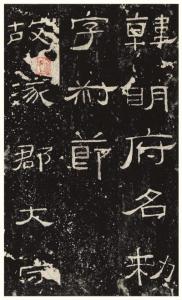 韓明府名勑
字叔節
故涿郡大守